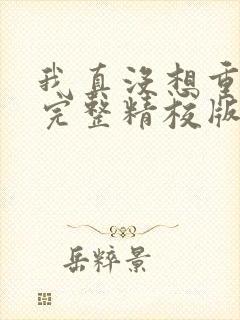 我真没想重
完整精校版
岳粹景